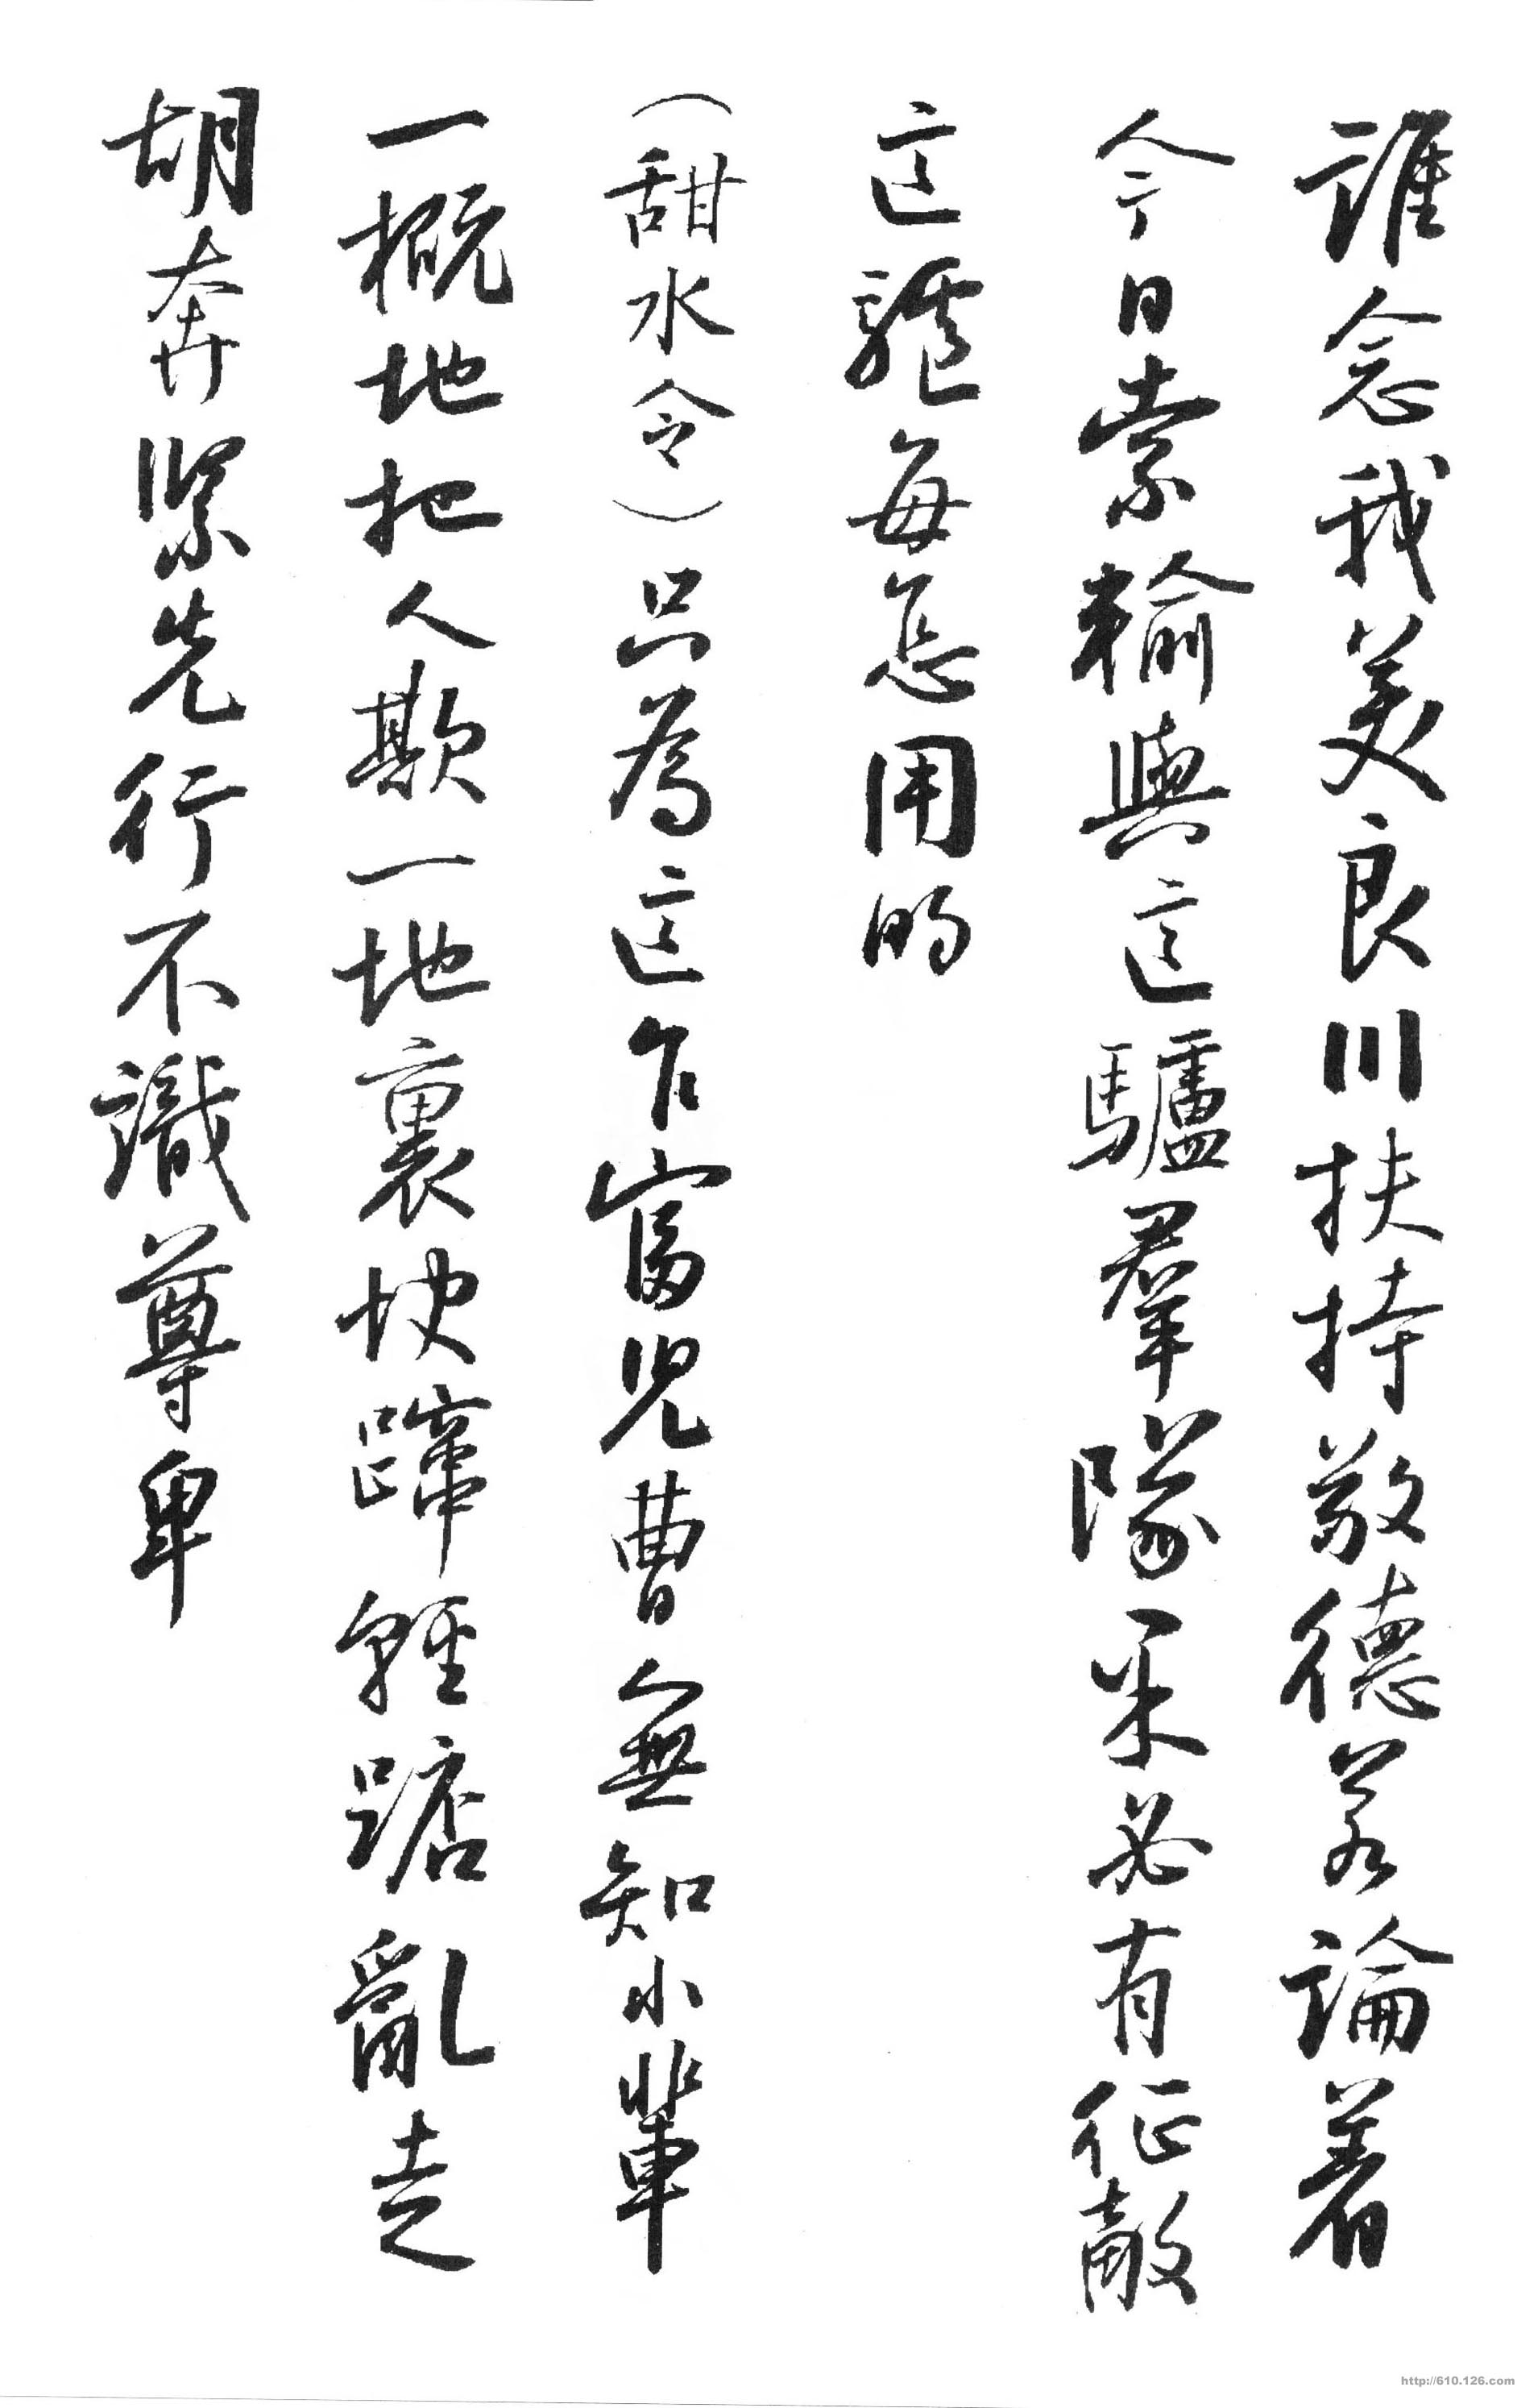 誰念我美良川扶持敬德若論着
今日索輸與這驢羣隊果必有征敵
這驢每怎用的
（甜水令）只為這乍富兒曹無知小輩
一概地把人欺一地裏快蹿輕踮亂走
胡奔緊先行不識尊卑
http://610.126.com